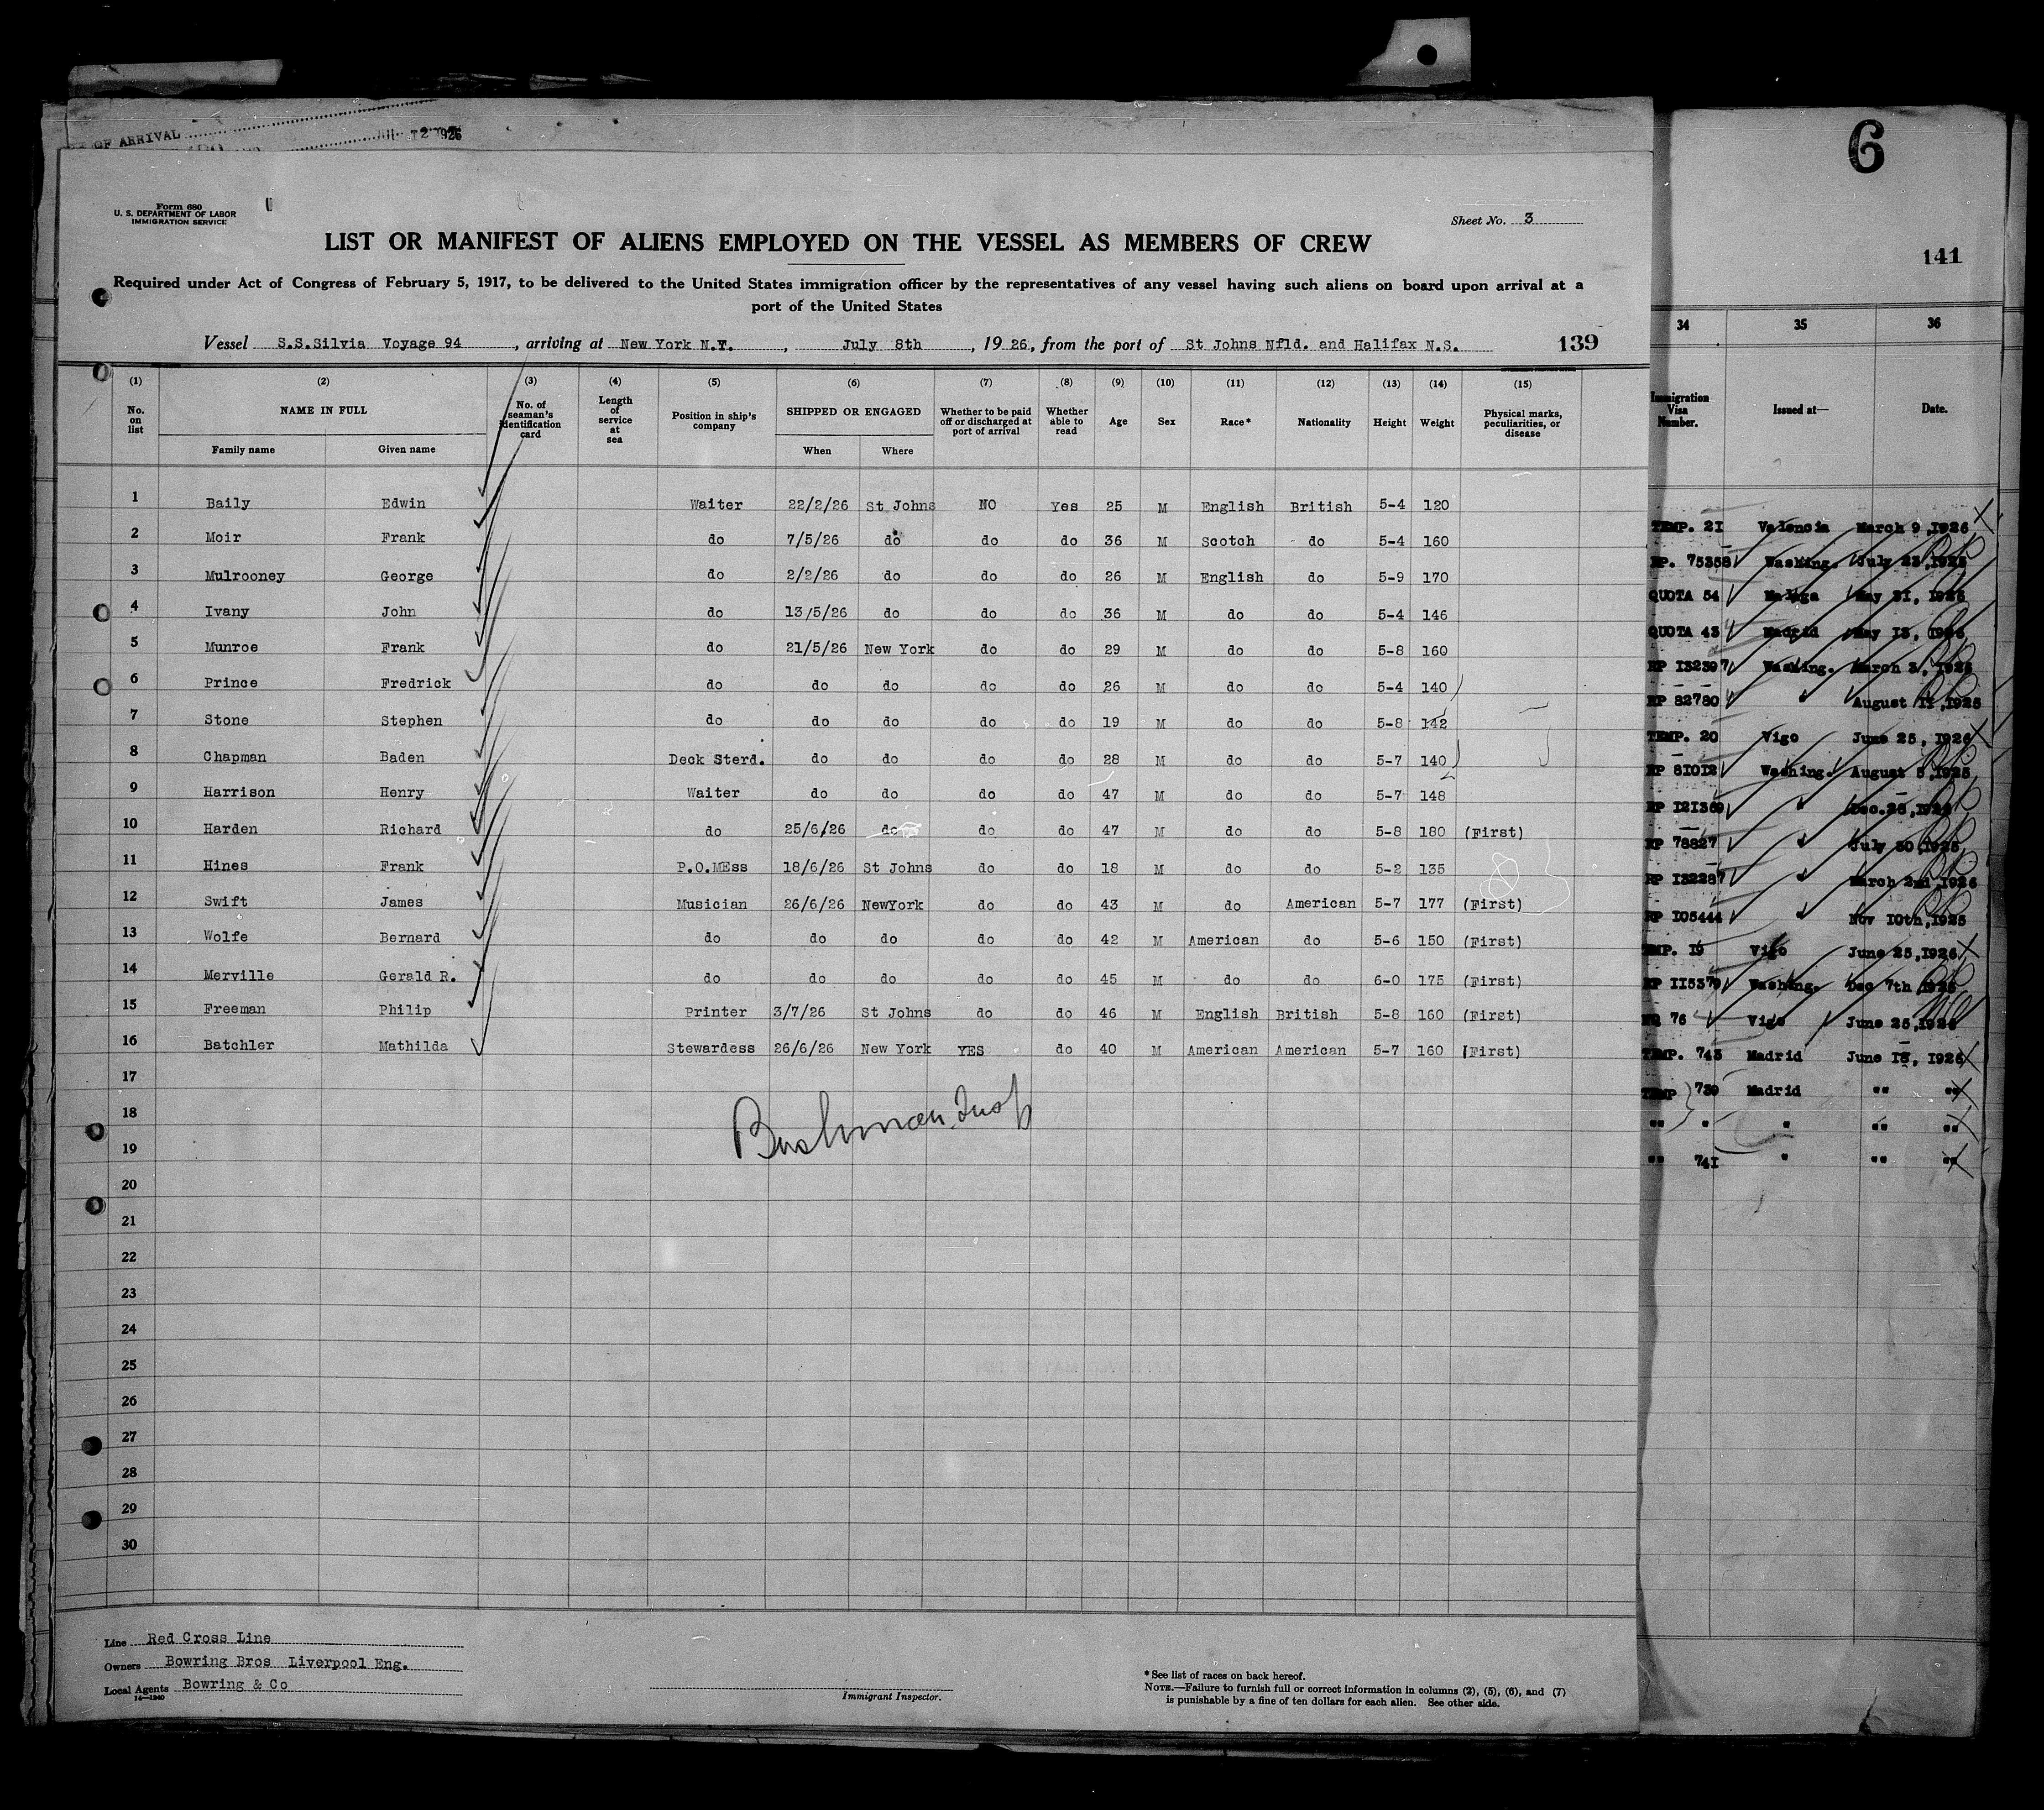 OF ARRIVAL
Form 680
U. S. DEPARTMENT OF LABOR
IMMIGRATION SERVICE
Sheet No. 3
LIST OR MANIFEST OF ALIENS EMPLOYED ON THE VESSEL AS MEMBERS OF CREW
Required under Act of Congress of February 5, 1917, to be delivered to the United States immigration officer by the representatives of any vessel having such aliens on board upon arrival at a
port of the United States
Vessel S.S.Silvia Voyage 94, arriving at New York N.Y., July 8th, 1926, from the port of St Johns Nfld. and Halifax N.S. 139
(1) (2) (3) (4) (5) (6) (7) (8) (9) (10) (11) (12) (13) (14) (15)
No. on list NAME IN FULL No. of seaman's identification card Length of service at sea Position in ship's company SHIPPED OR ENGAGED Whether to be paid off or discharged at port of arrival Whether able to read Age Sex Race* Nationality Height Weight Physical marks, peculiarities, or disease
Family name Given name When Where
1 Baily Edwin Waiter 22/2/26 St Johns NO Yes 25 M English British 5-4 120
2 Moir Frank do 7/5/26 do do do 36 M Scotch do 5-4 160
3 Mulrooney George do 2/2/26 do do do 26 M English do 5-9 170
4 Ivany John do 13/5/26 do do do 36 M do do 5-4 146
5 Munroe Frank do 21/5/26 New York do do 29 M do do 5-8 160
6 Prince Fredrick do do do do do 26 M do do 5-4 140
7 Stone Stephen do do do do do 19 M do do 5-8 142
8 Chapman Baden Deck Sterd. do do do do 28 M do do 5-7 140
9 Harrison Henry Waiter do do do do 47 M do do 5-7 148
10 Harden Richard do 25/6/26 do do do 47 M do do 5-8 180 (First)
11 Hines Frank P.O.MEss 18/6/26 St Johns do do 18 M do do 5-2 135
12 Swift James Musician 26/6/26 NewYork do do 43 M do American 5-7 177 (First)
13 Wolfe Bernard do do do do do 42 M American do 5-6 150 (First)
14 Merville Gerald R. do do do do do 45 M do do 6-0 175 (First)
15 Freeman Philip Printer 3/7/26 St Johns do do 46 M English British 5-8 160 (First)
16 Batchler Mathilda Stewardess 26/6/26 New York YES do 40 M American American 5-7 160 (First)
17
18
19
20
21
22
23
24
25
26
27
28
29
30
Line Red Cross Line
Owners Bowring Bros Liverpool Eng.
Local Agents Bowring & Co
14—1240
Immigrant Inspector.
* See list of races on back hereof.
NOTE.—Failure to furnish full or correct information in columns (2), (5), (6), and (7)
is punishable by a fine of ten dollars for each alien. See other side.
6
141
34 35 36
Immigration Visa Number. Issued at— Date.
TEMP. 21 Valencia March 9, 1926
RP. 75358 Washing. July 23, 1925
QUOTA 54 Malaga May 21, 1926
QUOTA 43 Madrid May 13, 1926
RP 132397 Washing. March 3, 1926
RP 82780 August 11, 1925
TEMP. 20 Vigo June 25, 1926
RP 81012 Washing. August 5, 1925
RP 121369 Dec.
RP 78827 July 30, 1925
RP 132287 March 2nd, 1926
RP 105444 Nov 10th, 1925
TEMP. 19 Vigo June 25, 1926
RP 115379 Washing. Dec 7th, 1925
NQ 76 Vigo June 25, 1926
TEMP. 743 Madrid June 18, 1926
TEMP 739 Madrid " "
" " " " "
" 741 " " "